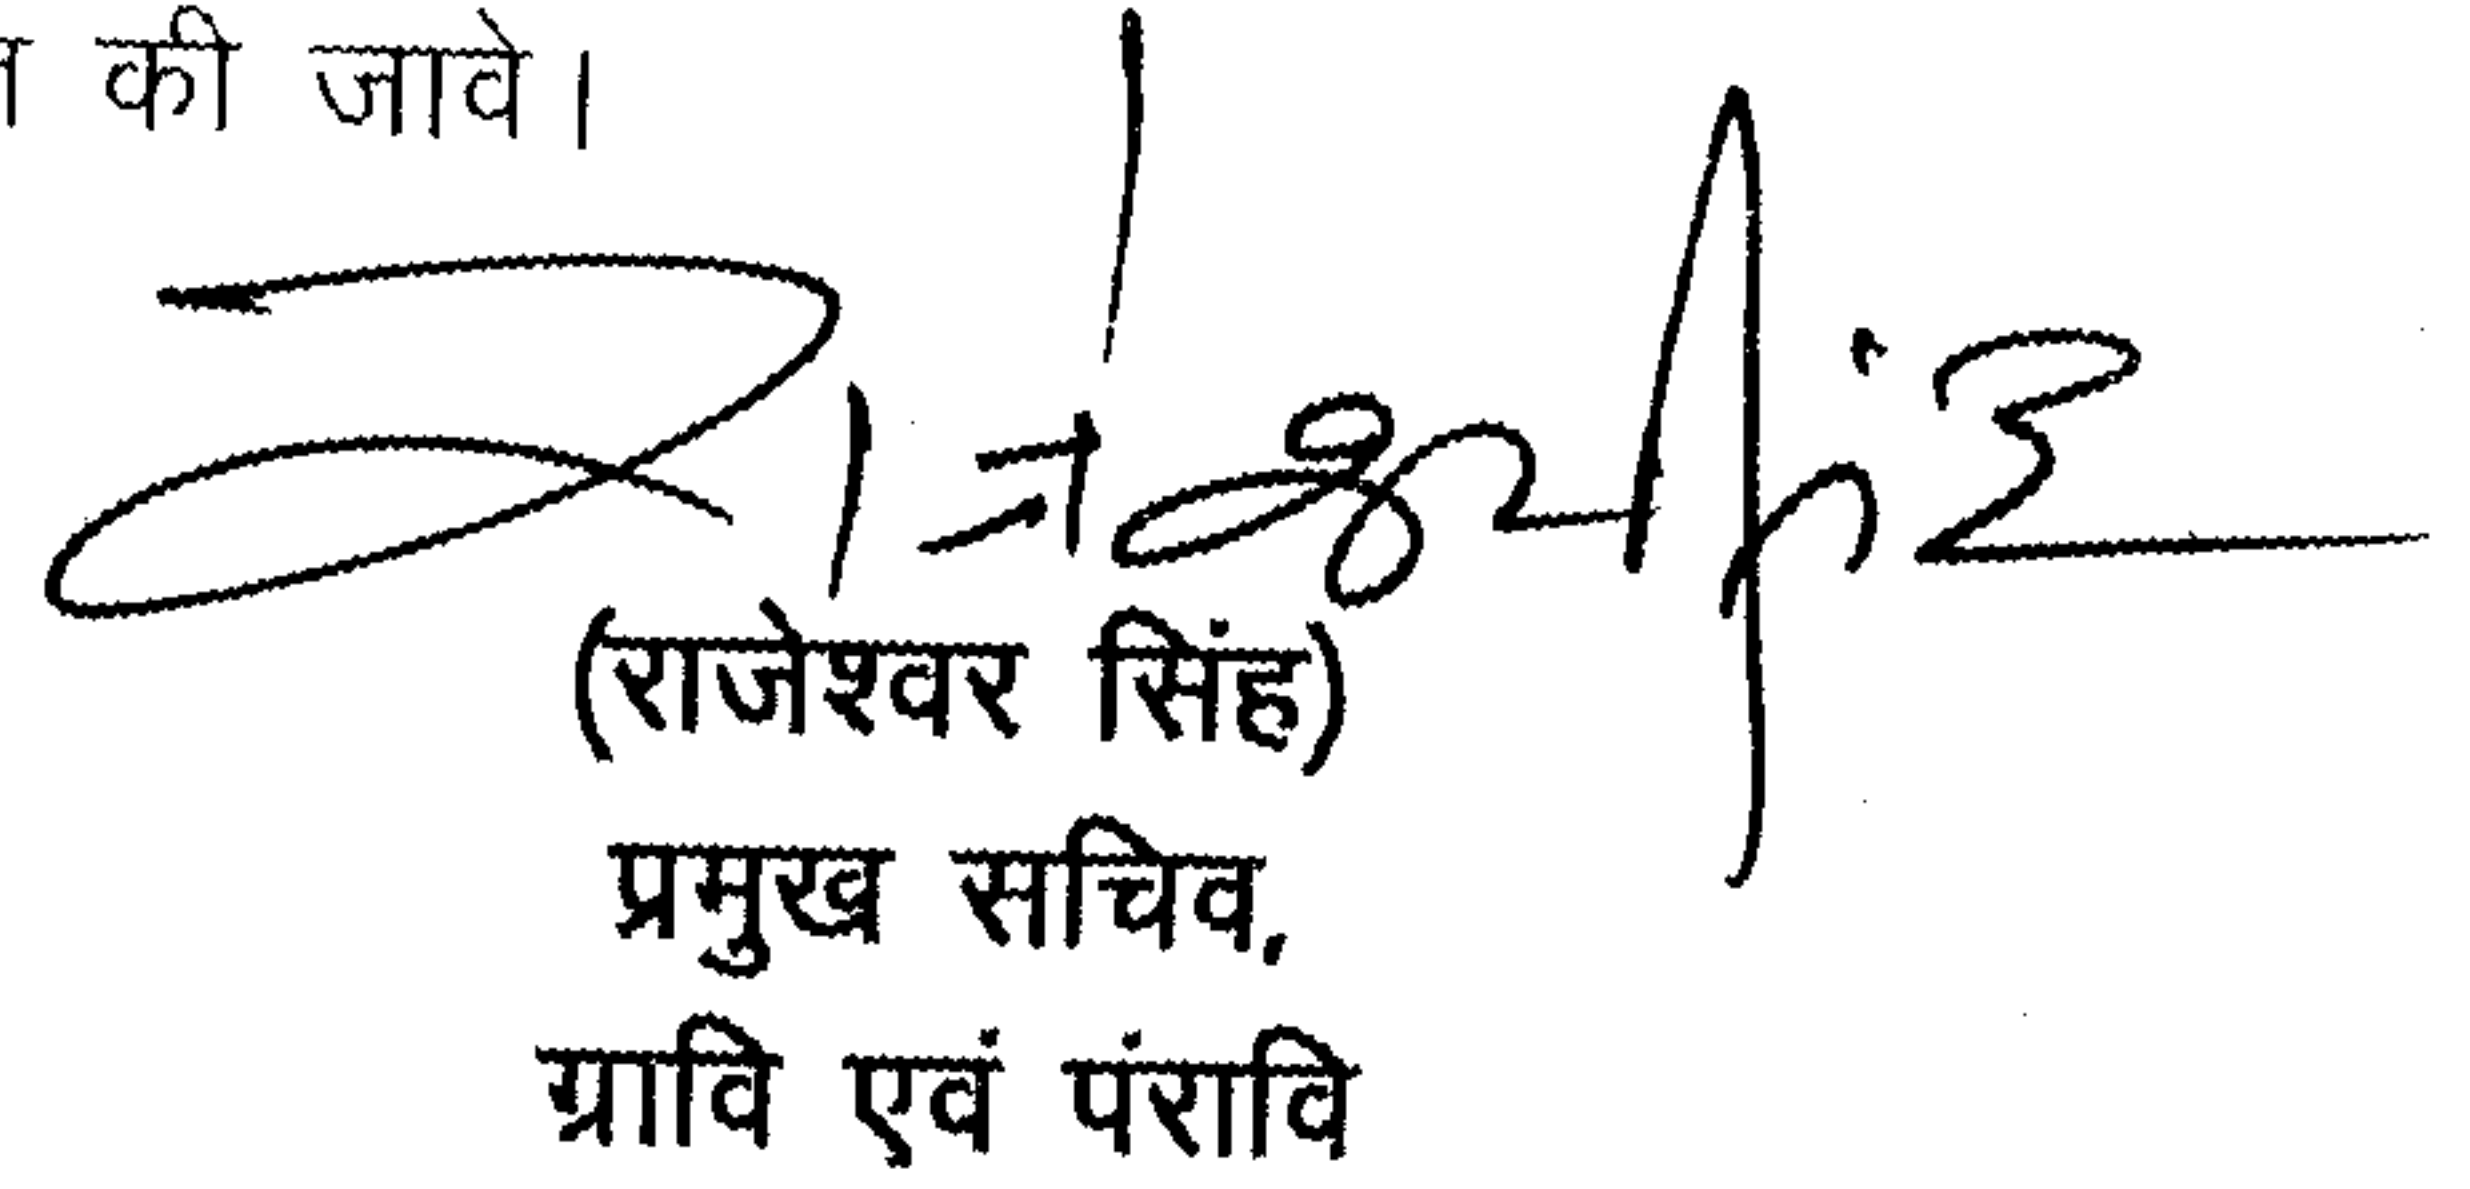 की जावे।
(राजेश्वर सिंह)
प्रमुख सचिव,
ग्रावि एवं पंरावि